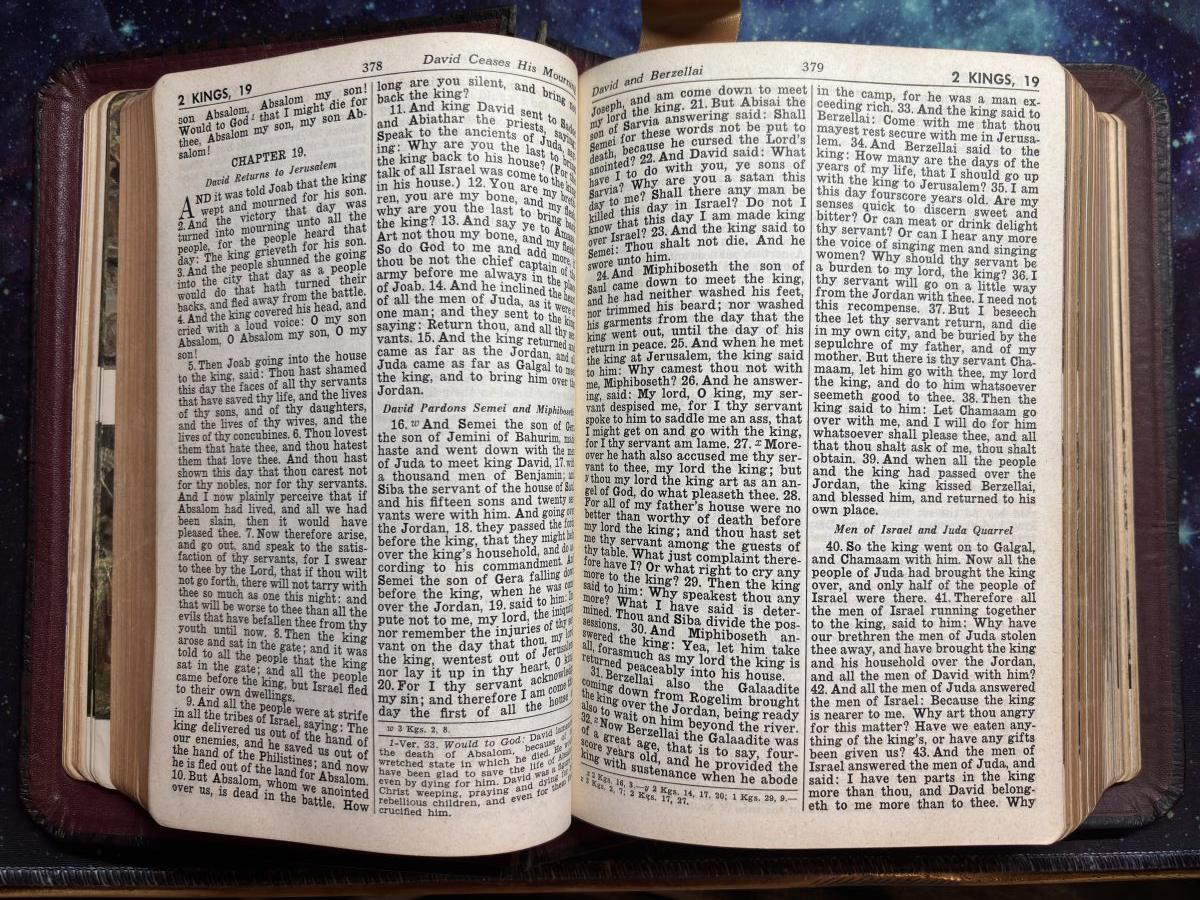 2 KINGS, 19
378
David Ceases His
son Absalom, Absalom my son!
Would to God l that I might die for
thee, Absalom my son, my son Ab-
salom!
CHAPTER 19.
David Returns to Jerusalem
AND it was told Joab that the king
wept and mourned for his son.
2. And the victory that day was
turned into mourning unto all the
people, for the people heard that
day: The king grieveth for his son.
3. And the people shunned the going
into the city that day as a people
would do that hath turned their
backs, and fled away from the battle.
4. And the king covered his head, and
cried with a loud voice: O my son
Absalom, O Absalom my son, O my
son!
5. Then Joab going into the house
to the king, said: Thou hast shamed
this day the faces of all thy servants
that have saved thy life, and the lives
of thy sons, and of thy daughters,
and the lives of thy wives, and the
lives of thy concubines. 6. Thou lovest
them that hate thee, and thou hatest
them that love thee. And thou hast
shown this day that thou carest not
for thy nobles, nor for thy servants.
And I now plainly perceive that if
Absalom had lived, and all we had
been slain, then it would have
pleased thee. 7. Now therefore arise,
and go out, and speak to the satis-
faction of thy servants, for I swear
to thee by the Lord, that if thou wilt
not go forth, there will not tarry with
thee so much as one this night: and
that will be worse to thee than all the
evils that have befallen thee from thy
youth until now. 8. Then the king
arose and sat in the gate; and it was
told to all the people that the king
sat in the gate; and all the people
came before the king, but Israel fled
to their own dwellings.
9. And all the people were at strife
in all the tribes of Israel, saying: The
king delivered us out of the hand of
our enemies, and he saved us out of
the hand of the Philistines; and now
he is fled out of the land for Absalom.
10. But Absalom, whom we anointed
over us, is dead in the battle. How
long are you silent, and bring not
back the king?
11. And king David sent to
and Abiathar the priests, saying:
Speak to the ancients of Juda,
ing: Why are you the last to bring
the king back to his house? (For the
talk of all Israel was come to the king
in his house.) 12. You are my breth-
ren, you are my bone, and my flesh,
why are you the last to bring back
the king? 13. And say ye to
Art not thou my bone, and my flesh?
So do God to me and add more, if
thou be not the chief captain of the
army before me always in the place
of Joab. 14. And he inclined the heart
of all the men of Juda, as it were of
one man; and they sent to the king,
saying: Return thou, and all thy ser-
vants. 15. And the king returned and
came as far as the Jordan, and all
Juda came as far as Galgal to meet
the king, and to bring him over the
Jordan.
David Pardons Semei and Miphiboseth
16. w And Semei the son of Gera
the son of Jemini of Bahurim, made
haste and went down with the men
of Juda to meet king David, 17. with
a thousand men of Benjamin; and
Siba the servant of the house of Saul,
and his fifteen sons and twenty ser-
vants were with him. And going over
the Jordan, 18. they passed the ford
before the king, that they might help
over the king's household, and do ac-
cording to his commandment. And
Semei the son of Gera falling down
before the king, when he was come
over the Jordan, 19. said to him: Im-
pute not to me, my lord, the iniquity,
nor remember the injuries of thy ser-
vant on the day that thou, my lord
the king, wentest out of Jerusalem,
nor lay it up in thy heart, O king.
20. For I thy servant acknowledge
my sin; and therefore I am come this
day the first of all the house of
w 3 Kgs. 2, 8.
l-Ver. 33. Would to God: David
the death of Absalom, because of
wretched state in which he died,
have been glad to save the life of
even by dying for him. David was a
Christ weeping, praying and dying for
rebellious children, and even for them
crucified him.
David and Berzellai
379
2 KINGS, 19
Joseph, and am come down to meet
my lord the king. 21. But Abisai the
son of Sarvia answering said: Shall
Semei for these words not be put to
death, because he cursed the Lord's
anointed? 22. And David said: What
have I to do with you, ye sons of
Sarvia? Why are you a satan this
day to me? Shall there any man be
killed this day in Israel? Do not I
know that this day I am made king
over Israel? 23. And the king said to
Semei: Thou shalt not die. And he
swore unto him.
24. And Miphiboseth the son of
Saul came down to meet the king,
and he had neither washed his feet,
nor trimmed his beard; nor washed
his garments from the day that the
king went out, until the day of his
return in peace. 25. And when he met
the king at Jerusalem, the king said
to him: Why camest thou not with
me, Miphiboseth? 26. And he answer-
ing, said: My lord, O king, my ser-
vant despised me, for I thy servant
spoke to him to saddle me an ass, that
I might get on and go with the king,
for I thy servant am lame. 27. x More-
over he hath also accused me thy ser-
vant to thee, my lord the king; but
y thou my lord the king art as an an-
gel of God, do what pleaseth thee. 28.
For all of my father's house were no
better than worthy of death before
my lord the king; and thou hast set
me thy servant among the guests of
thy table. What just complaint there-
fore have I? Or what right to cry any
more to the king? 29. Then the king
said to him: Why speakest thou any
more? What I have said is deter-
mined. Thou and Siba divide the pos-
sessions. 30. And Miphiboseth an-
swered the king: Yea, let him take
all, forasmuch as my lord the king is
returned peaceably into his house.
31. Berzellai also the Galaadite
coming down from Rogelim brought
the king over the Jordan, being ready
also to wait on him beyond the river.
32. z Now Berzellai the Galaadite was
of a great age, that is to say, four-
score years old, and he provided the
king with sustenance when he abode
x 2 Kgs. 16, 3.—y 2 Kgs. 14, 17, 20; 1 Kgs. 29, 9.—
z 3 Kgs. 2, 7; 2 Kgs. 17, 27.
in the camp, for he was a man ex-
ceeding rich. 33. And the king said to
Berzellai: Come with me that thou
mayest rest secure with me in Jerusa-
lem. 34. And Berzellai said to the
king: How many are the days of the
years of my life, that I should go up
with the king to Jerusalem? 35. I am
this day fourscore years old. Are my
senses quick to discern sweet and
bitter? Or can meat or drink delight
thy servant? Or can I hear any more
the voice of singing men and singing
women? Why should thy servant be
a burden to my lord, the king? 36. I
thy servant will go on a little way
from the Jordan with thee. I need not
this recompense. 37. But I beseech
thee let thy servant return, and die
in my own city, and be buried by the
sepulchre of my father, and of my
mother. But there is thy servant Cha-
maam, let him go with thee, my lord
the king, and do to him whatsoever
seemeth good to thee. 38. Then the
king said to him: Let Chamaam go
over with me, and I will do for him
whatsoever shall please thee, and all
that thou shalt ask of me, thou shalt
obtain. 39. And when all the people
and the king had passed over the
Jordan, the king kissed Berzellai,
and blessed him, and returned to his
own place.
Men of Israel and Juda Quarrel
40. So the king went on to Galgal,
and Chamaam with him. Now all the
people of Juda had brought the king
over, and only half of the people of
Israel were there. 41. Therefore all
the men of Israel running together
to the king, said to him: Why have
our brethren the men of Juda stolen
thee away, and have brought the king
and his household over the Jordan,
and all the men of David with him?
42. And all the men of Juda answered
the men of Israel: Because the king
is nearer to me. Why art thou angry
for this matter? Have we eaten any-
thing of the king's, or have any gifts
been given us? 43. And the men of
Israel answered the men of Juda, and
said: I have ten parts in the king
more than thou, and David belong-
eth to me more than to thee. Why